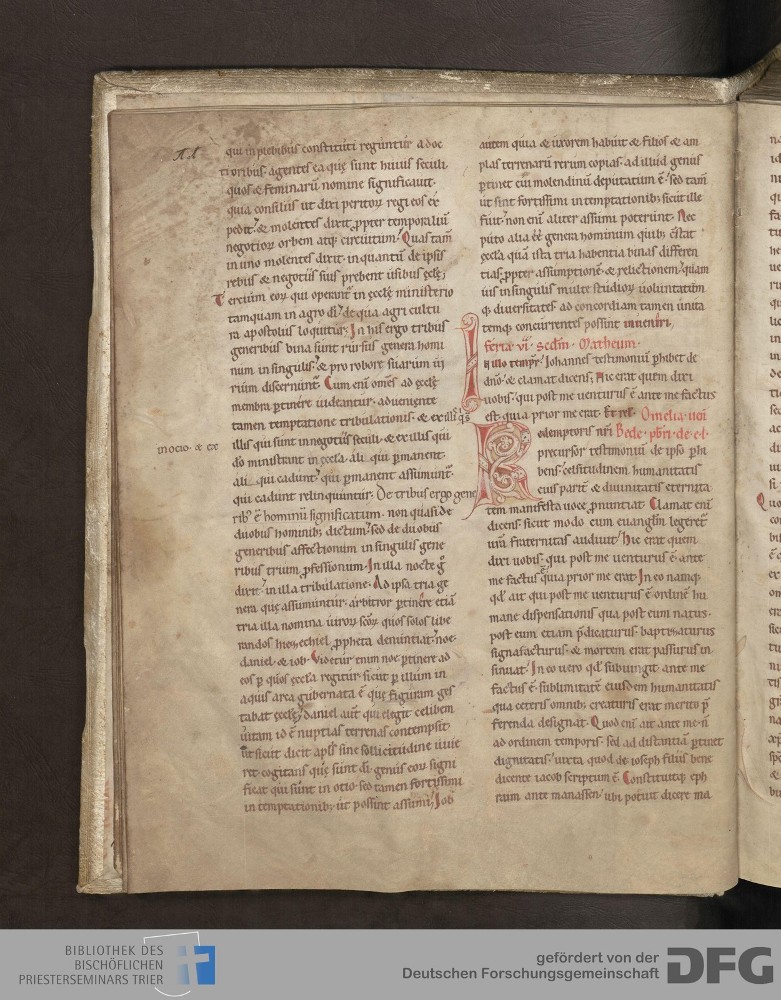 qui in plebibus constituti reguntur a doc
toribus agentes ea quę sunt huius seculi.
quos & feminarū nomine significauit.
quia consiliis ut dixi peritorꝝ regi eos ex
pedit. & molentes dixit ꝓpter temporaliū
negotiorꝝ orbem atq; circuitum. Quas tam̄
in uno molentes dixit in quantū de ipsis
rebus & negotiis suis prebent usibus ęcłę;
Tercium eorꝝ qui operant᷑ in ęccłę ministerio
tamquam in agro dī. de qua agri cultu
ra apostolus loquitur. In his ergo tribus
generibus bina sunt rursus genera homi
num in singulis. & pro robore suarum ui
rium discernunt᷑. Cum enī om̄es ad ęccłę
membra ꝑtinere uideantur. adueniente
tamen temptatione tribulationis. & ex illis q's
illis qui sunt in negotiis sęculi. & ex illis qui
in ocio. & ex
dō ministrant in ęccła. alii qui ꝑmanent.
alii qui cadunt. qui ꝑmanent assumunt᷑.
qui cadunt relinquuntur. De tribus ergo gene
rib; ē hominū significatum. non quasi de
duobus hominib; dictum. sed de duobus
generibus affectionum in singulis gene
ribus trium ꝓfessionum. In illa nocte g̊
dixit. in illa tribulatione. Ad ipsa tria ge
nera quę assumuntur. arbitror ꝑtinere etiā
tria illa nomina uirorꝝ scōrꝝ quos solos libe
randos hiezechiel ꝓpheta denuntiat. noe.
daniel. & iob. Videtur enim noe ꝑtinere ad
eos ꝑ quos ęccła regitur. sicut ꝑ illum in
aquis arca gubernata ē quę figuram ges
tabat ęccłę. daniel aut̄ qui elegit celibem
uitam id ē nuptias terrenas contempsit.
ut sicut dicit apłs sine sollicitudine uiue
ret cogitans quę sunt dī. genus eorꝝ signi
ficat qui sunt in otio. sed tamen fortissimi
in temptationib; ut possint assumi; Iob
autem quia & uxorem habuit & filios & am
plas terrenarū rerum copias. ad illud genus
ꝑtinet cui molendinū deputatum ē. sed tam̄
ut sint fortissimi in temptationib; sicut ille
fuit. non enī aliter assumi poterunt. Nec
puto alia ee̅ genera hominum quib; cstat
ęccła quā ista tria habentia binas differen
tias ꝓpter assumptionē & relictionem. quam
uis in singulis multe studiorꝝ uoluntatum
q; diuersitates ad concordiam tamen unita
temq; concurrentes possint inueniri;
feria. vi. secdm̄. Matheum.
In illo tempr̄. Iohannes testimoniū ꝑhibet de
dn̄o. & clamat dicens. Hic erat quem dixi
uobis. qui post me uenturus ē ante me factus
est. quia prior me erat. Et rel. Omelia ueñ
Redemptoris nr̄i Bede. pbr̄i. de e. l.
precursor testimoniū de ipso ꝑhi
bens. celsitudinem humanitatis
eius parit̄ & diuinitatis eternita
tem manifesta uoce ꝓnuntiat. Clamat enī
dicens. sicut modo cum euangłm legeret᷑
ur̄a fraternitas audiuit. Hic erat quem
dixi uobis. qui post me uenturus ē. ante
me factus ē. quia prior me erat. In eo namq;
qd̄ ait qui post me uenturus ē. ordinē hu
mane dispensationis qua post eum natus.
post eum etiam p̄dicaturus. baptizaturus
signa facturus. & mortem erat passurus in
sinuat. In eo uero qd̄ subiungit ante me
factus ē. sublimitatē eiusdem humanitatis
qua ceteris omnib; creaturis erat merito p̄
ferenda designat. Quod enī ait ante me. n̄
ad ordinem temporis. sed ad distantiā ꝑtinet
dignitatis. iuxta quod de ioseph filiis bene
dicente iacob scriptum ē. Constituitq; eph
raim ante manassen. ubi potuit dicere ma
BIBLIOTHEK DES
BISCHÖFLICHEN
PRIESTERSEMINARS TRIER
gefördert von der
Deutschen Forschungsgemeinschaft
DFG